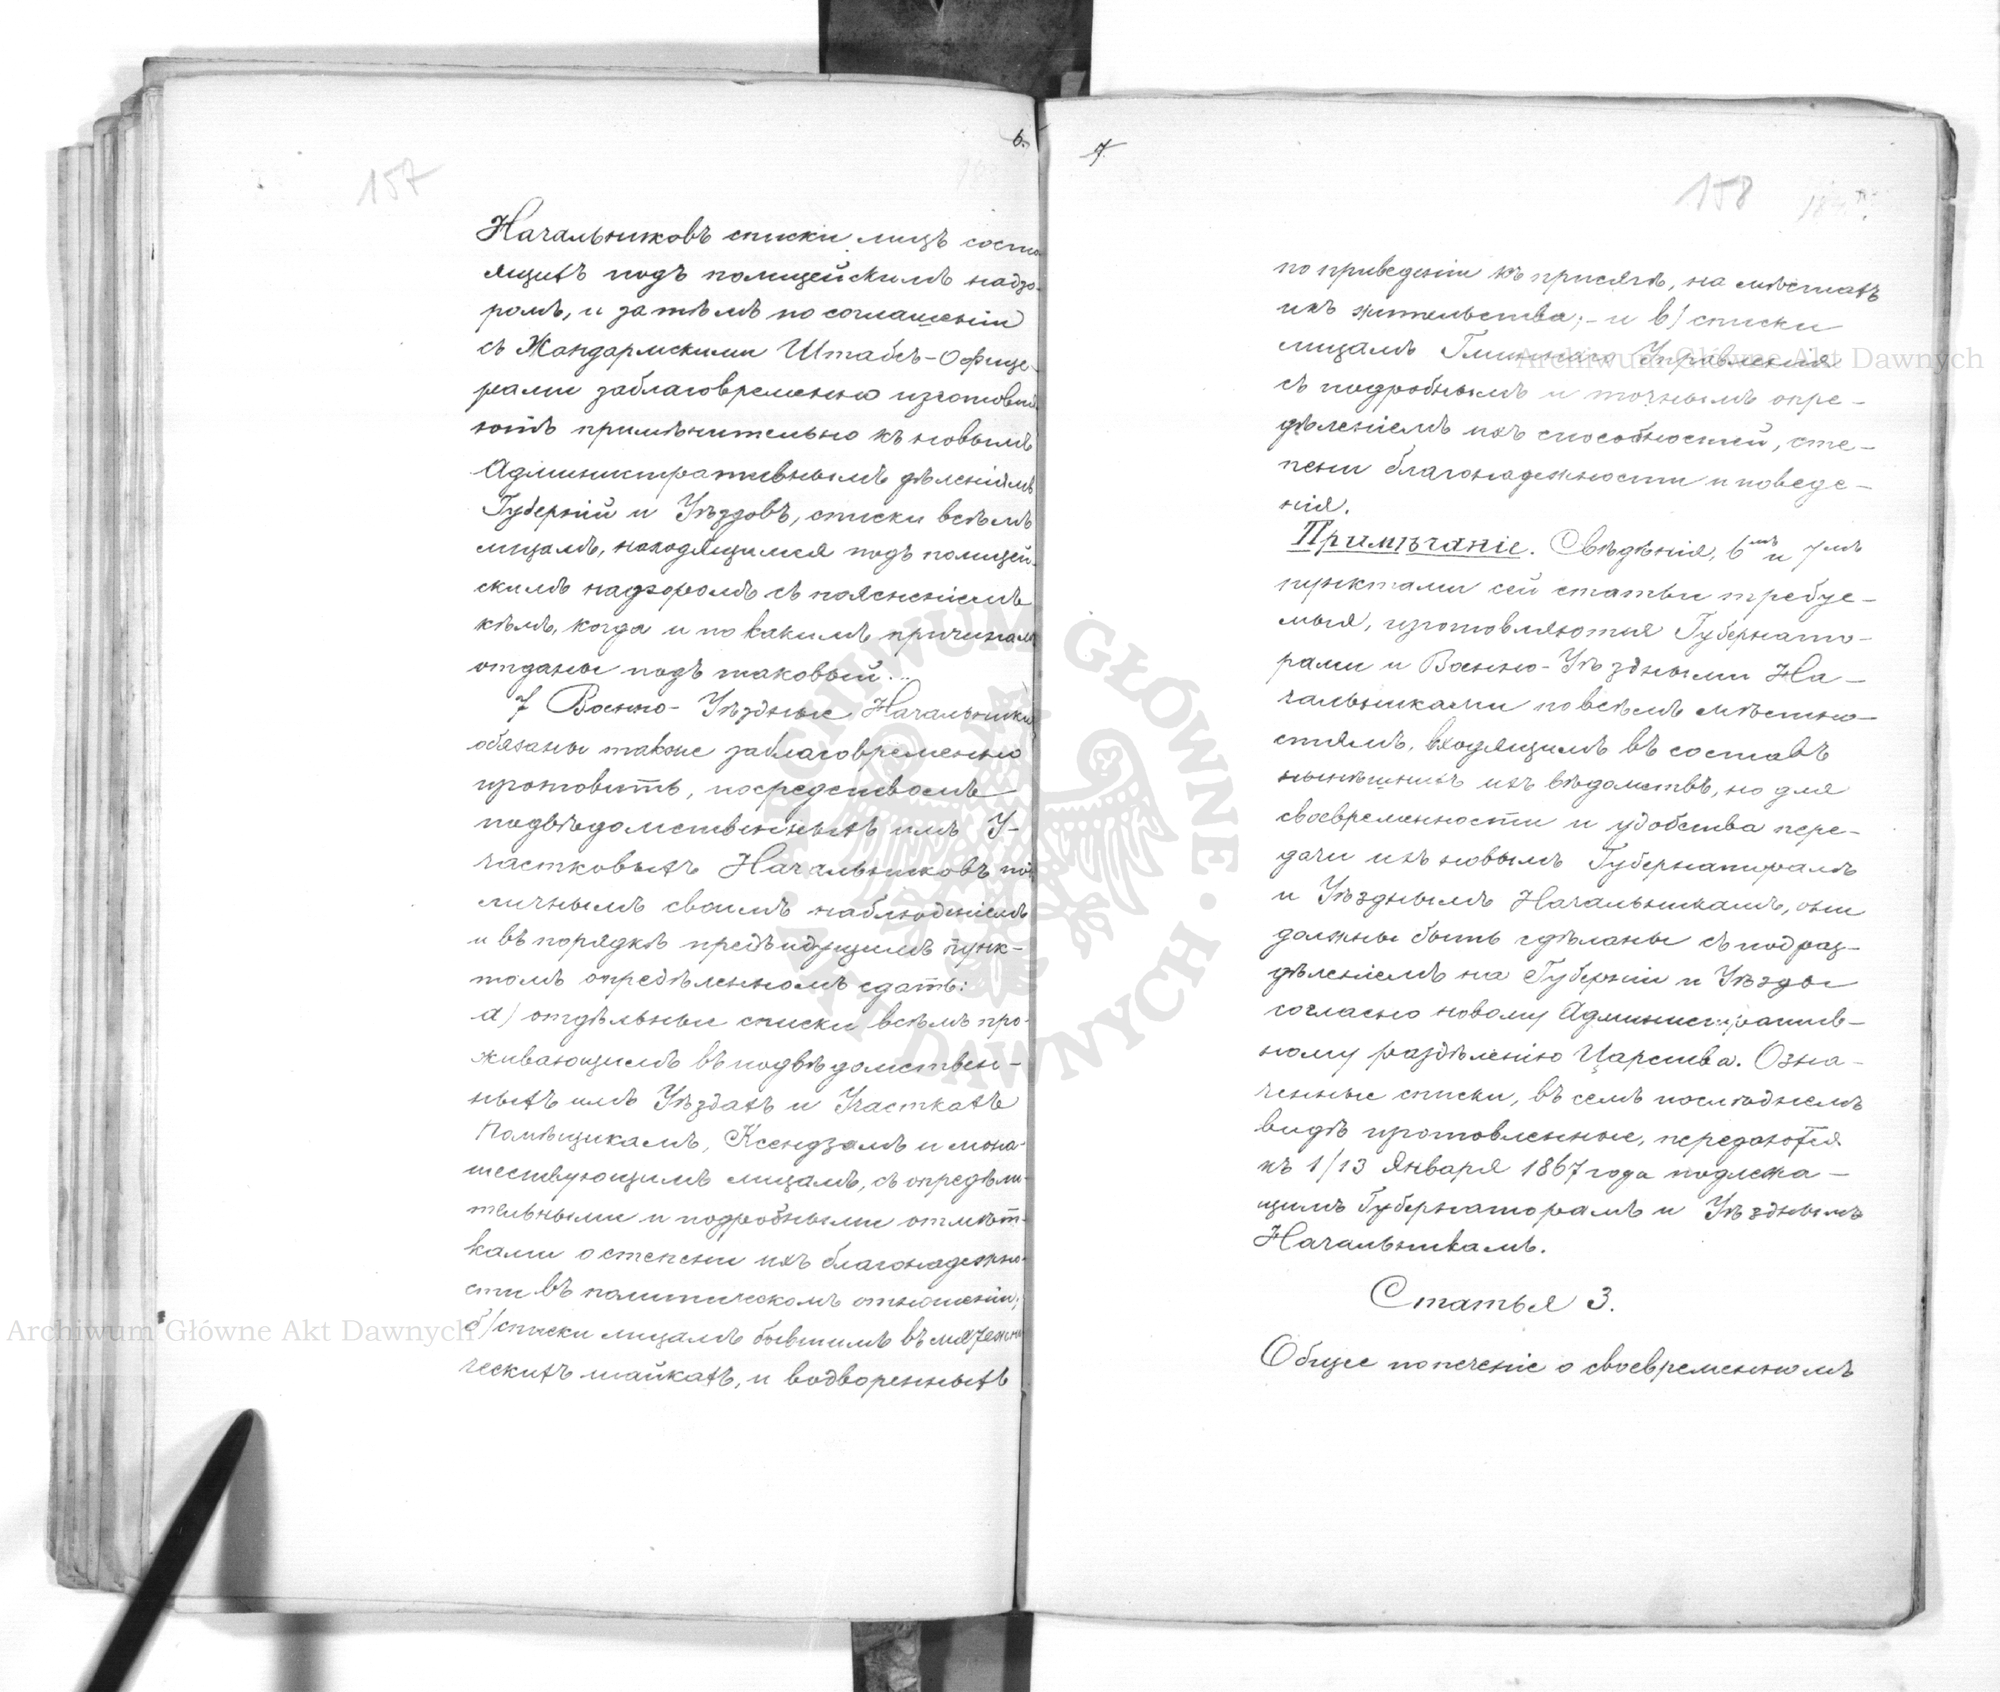 6.
157
Начальниковъ списки лицъ состо
ящихъ подъ полицейскимъ надзо-
ромъ, и затѣмъ по соглашенію
съ Жандармскими Штабъ-Офице-
рами заблаговременно изготовля
ютъ примѣнительно къ новымъ
Административнымъ дѣленіямъ
Губерній и Уѣздовъ, списки всѣмъ
лицамъ, находящимся подъ полицей-
скимъ надзоромъ съ поясненіемъ
кѣмъ, когда и по какимъ причинамъ
отданы подъ таковый.
7 Военно-Уѣздные Начальники
обязаны также заблаговременно
изготовить, посредствомъ
подвѣдомственныхъ имъ У-
частковыхъ Начальниковъ подъ
личнымъ своимъ наблюденіемъ
и въ порядкѣ предъидущимъ пунк-
томъ опредѣленномъ сдать:
а) отдѣльные списки всѣмъ про-
живающимъ въ подвѣдомствен-
ныхъ имъ Уѣздахъ и Участкахъ
Помѣщикамъ, Ксендзамъ и мона-
шествующимъ лицамъ, съ опредѣли-
тельными и подробными отмѣт-
ками о степени ихъ благонадежно-
сти въ политическомъ отношеніи;
б) списки лицамъ бывшимъ въ мятежни
ческихъ шайкахъ, и водворенныхъ
7.
158
по приведеніи къ присягѣ, на мѣстахъ
ихъ жительства; - и в) списки
лицамъ Гминнаго Управленія
съ подробнымъ и точнымъ опре-
дѣленіемъ ихъ способностей, сте-
пени благонадежности и поведе-
нія.
Примѣчаніе. Свѣдѣнія, 6мъ и 7мъ
пунктами сей статьи требуе-
мыя, изготовляются Губернато-
рами и Военно-Уѣздными На-
чальниками по всѣмъ мѣстно-
стямъ, входящимъ въ составъ
нынѣшнихъ ихъ вѣдомствъ, но для
своевременности и удобства пере-
дачи ихъ новымъ Губернаторамъ
и Уѣзднымъ Начальникамъ, они
должны быть сдѣланы съ подраз-
дѣленіемъ на Губерніи и Уѣзды
согласно новому Административ-
ному раздѣленію Царства. Озна-
ченные списки, въ семъ послѣднемъ
видѣ изготовленные, передаются
къ 1/13 Января 1867 года подлежа-
щимъ Губернаторамъ и Уѣзднымъ
Начальникамъ.
Статья 3.
Общее попеченіе о своевременномъ
Archiwum Główne Akt Dawnych
Archiwum Główne Akt Dawnych
ARCHIWUM GŁÓWNE · AKT DAWNYCH ·